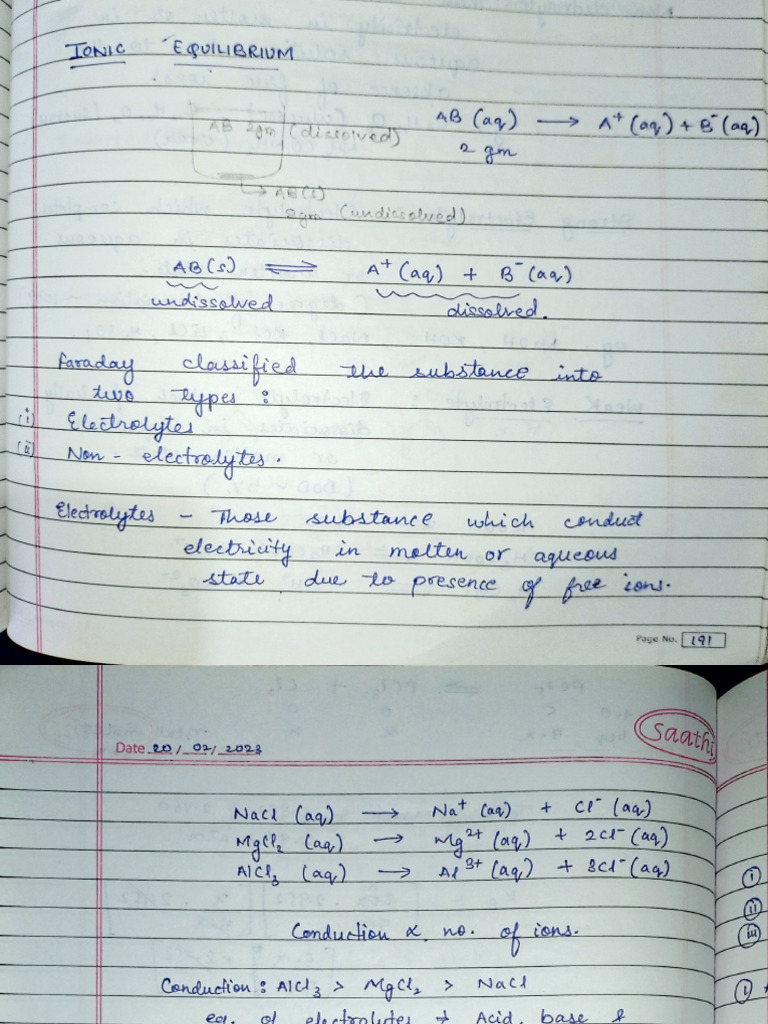 IONIC EQUILIBRIUM
AB 2gm (dissolved)
AB (aq) → A⁺ (aq) + B⁻ (aq)
2 gm
→ AB(s)
2gm (undissolved)
AB(s) ⇌ A⁺ (aq) + B⁻ (aq)
undissolved dissolved.
Faraday classified the substance into
two types :
(i) Electrolytes
(ii) Non - electrolytes.
Electrolytes - Those substance which conduct
electricity in molten or aqueous
state due to presence of free ions.
Page No. 191
Date 20/02/2023
Saathi
NaCl (aq) → Na⁺ (aq) + Cl⁻ (aq)
MgCl₂ (aq) → Mg²⁺ (aq) + 2Cl⁻ (aq)
AlCl₃ (aq) → Al³⁺ (aq) + 3Cl⁻ (aq)
Conduction ∝ no. of ions.
Conduction : AlCl₃ > MgCl₂ > NaCl
eg. of electrolytes → Acid, base &
(i)
(ii)
(iii)
(i)